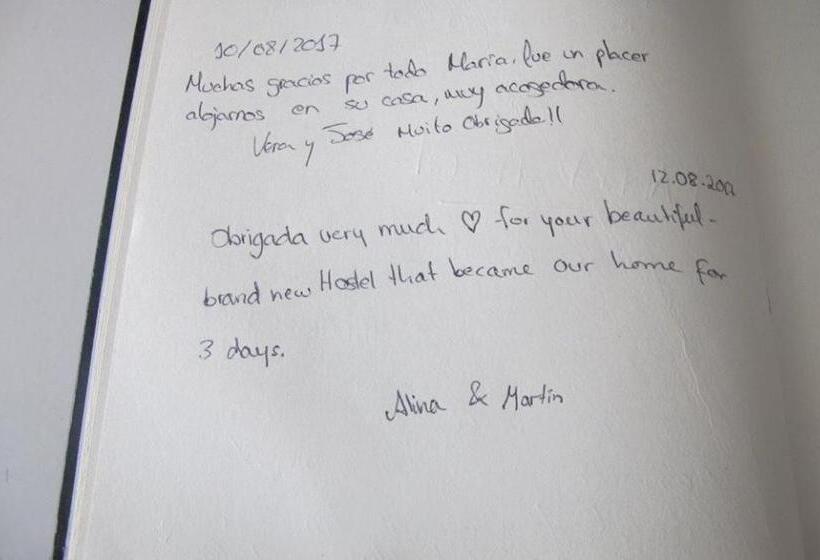 10/08/2017
Muchas gracias por todo María, fue un placer
alojarnos en su casa, muy acogedora.
Vera y José Muito Obrigado!!
12.08.201
Obrigada very much ♡ for your beautiful-
brand new Hostel that became our home for
3 days.
Alina & Martin